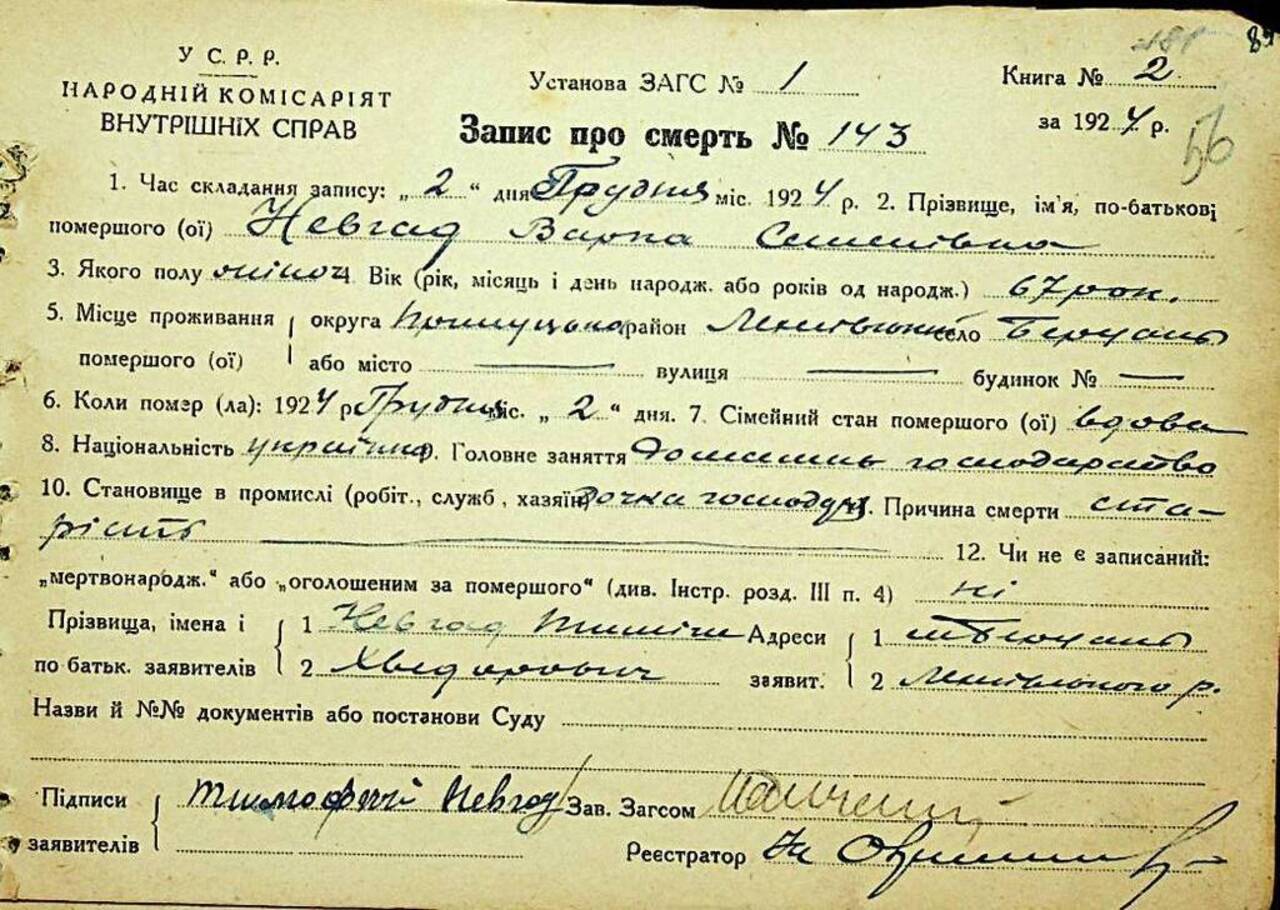 У С. Р. Р.
НАРОДНІЙ КОМІСАРІЯТ
ВНУТРІШНІХ СПРАВ
Установа ЗАГС № 1
Книга № 2
за 1924 р.
56
Запис про смерть № 143
1. Час складання запису: „ 2 “ дня Грудня міс. 1924 р. 2. Прізвище, ім'я, по-батькові
помершого (ої) Невгад Варка Семенівна
3. Якого полу жіноч 4. Вік (рік, місяць і день народж. або років од народж.) 67 рок.
5. Місце проживання помершого (ої) округа Прилуцька район село
або місто вулиця будинок №
6. Коли помэр (ла): 1924 р Грудня міс. „ 2 “ дня. 7. Сімейний стан помершого (ої) вдова
8. Національність українка 9. Головне заняття господарство
10. Становище в промислі (робіт., служб, хазяїн) . Причина смерти ста-
рість 12. Чи не є записаний:
„мертвонародж.“ або „оголошеним за помершого“ (див. Інстр. розд. III п. 4) ні
Прізвища, імена і по батьк. заявителів 1 Невгад Тиміш Адреси заявит. 1
2 Хведорович 2 р.
Назви й №№ документів або постанови Суду
Підписи заявителів Тимофей Невгад Зав. Загсом
Реєстратор